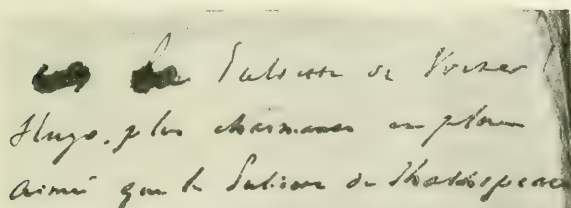 la Juliette de Victor
Hugo, plus charmante et plus
aimée que la Juliette de Shakespeare